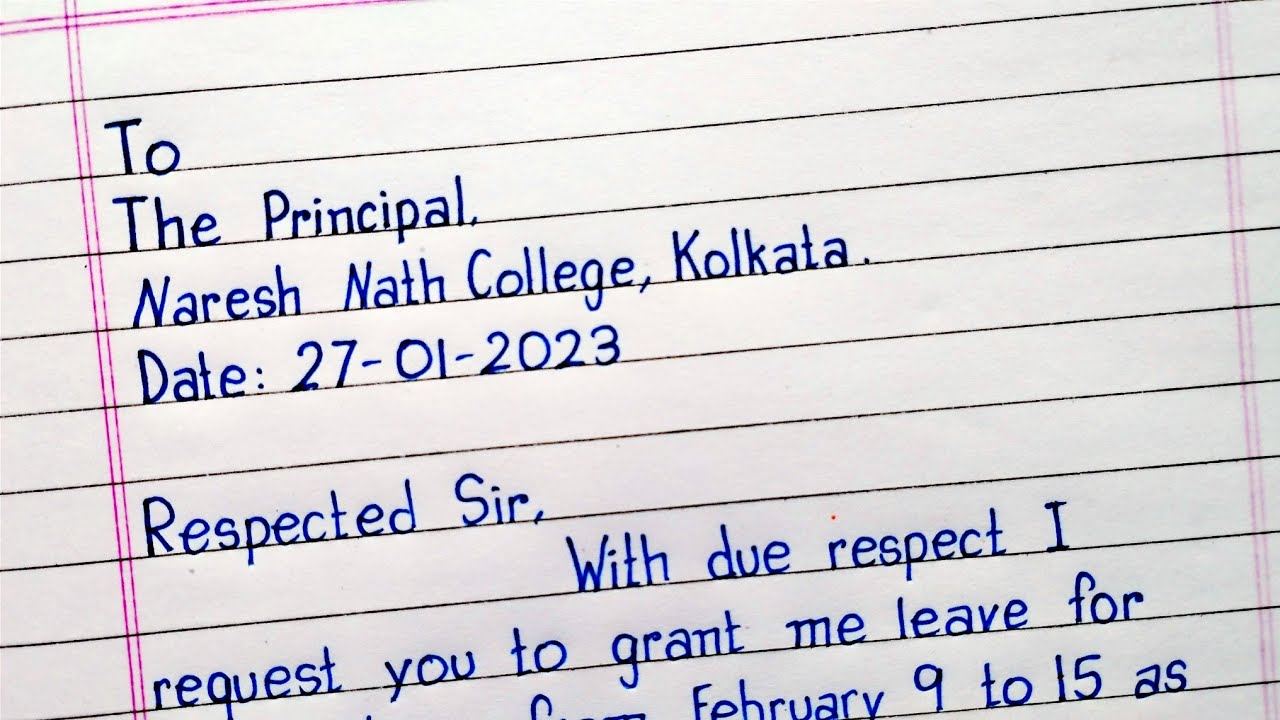 To
The Principal,
Naresh Nath College, Kolkata.
Date: 27-01-2023
Respected Sir,
With due respect I
request you to grant me leave for
from February 9 to 15 as